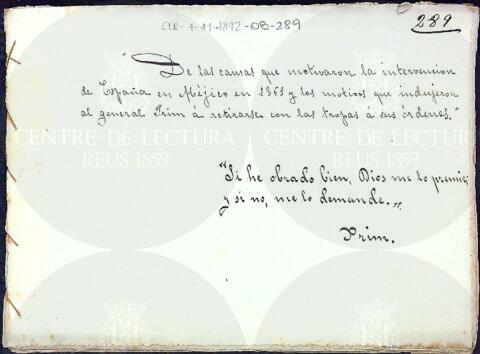 CLR-4-11-1892-DB-289
289
"De las causas que motivaron la intervencion
de España en Méjico en 1861 y los motivos que indujeron
al general Prim á retirarse con las tropas á sus órdenes."
CENTRE DE LECTURA
REUS 1859
CENTRE DE LECTURA
REUS 1859
CENTRE DE LECTURA
REUS 1859
"Si he obrado bien, Dios me lo premie;
y si no, me lo demande."
Prim.